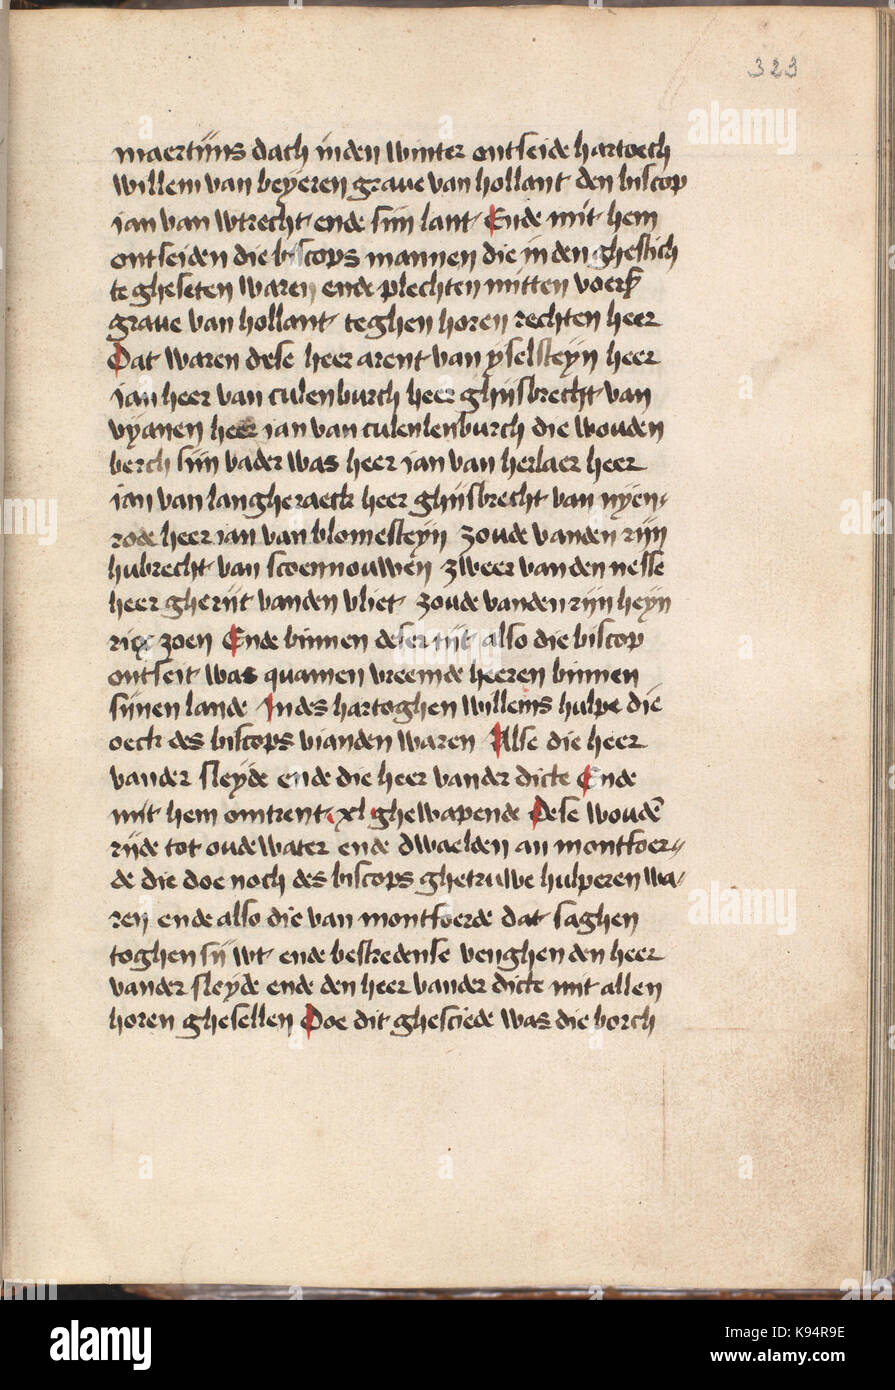 323
maertijns dach in den winter ontseide hartoech
willem van beyeren graue van hollant den biscop
ian van wtrecht ende sijn lant Ende mit hem
ontseiden die biscops mannen die in den ghestich
te gheseten waren ende plechten mitten voers
graue van hollant teghen horen rechten heer
Dat waren dese heer arent van yselsteyn heer
ian heer van culenburch heer ghijsbrecht van
vyanen heer ian van culenlenburch die wouden
berch sijn vader was heer ian van herlaer heer
ian van langheraeck heer ghijsbrecht van nyen-
rode heer ian van blomesteyn zoude vanden rijn
hubrecht van scoennouwen zweer van den nesse
heer gherijt vanden vliet zoude vanden rijn heyn
rix zoen Ende binnen deser tijt also die biscop
ontseit was quamen vreemde heeren binnen
sijnen lande In des hartoghen willems hulpe die
oeck des biscops vianden waren Alse die heer
vander sleyde ende die heer vander dicte Ende
mit hem omtrent xl ghewapende Dese woudē
rijde tot oudewater ende dwaelden an montfoer-
de die doe noch des biscops ghetruwe hulperen wa-
ren ende also die van montfoerde dat saghen
toghen sij wt ende bestredense venghen den heer
vander sleyde ende den heer vander dicte mit allen
horen ghesellen Doe dit ghesciede was die borch
alamy
Image ID: K94R9E
www.alamy.com